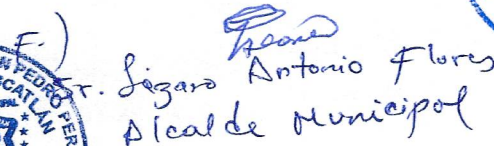 F.)
Sr. Lázaro Antonio Flores
Alcalde Municipal
N PEDRO PER